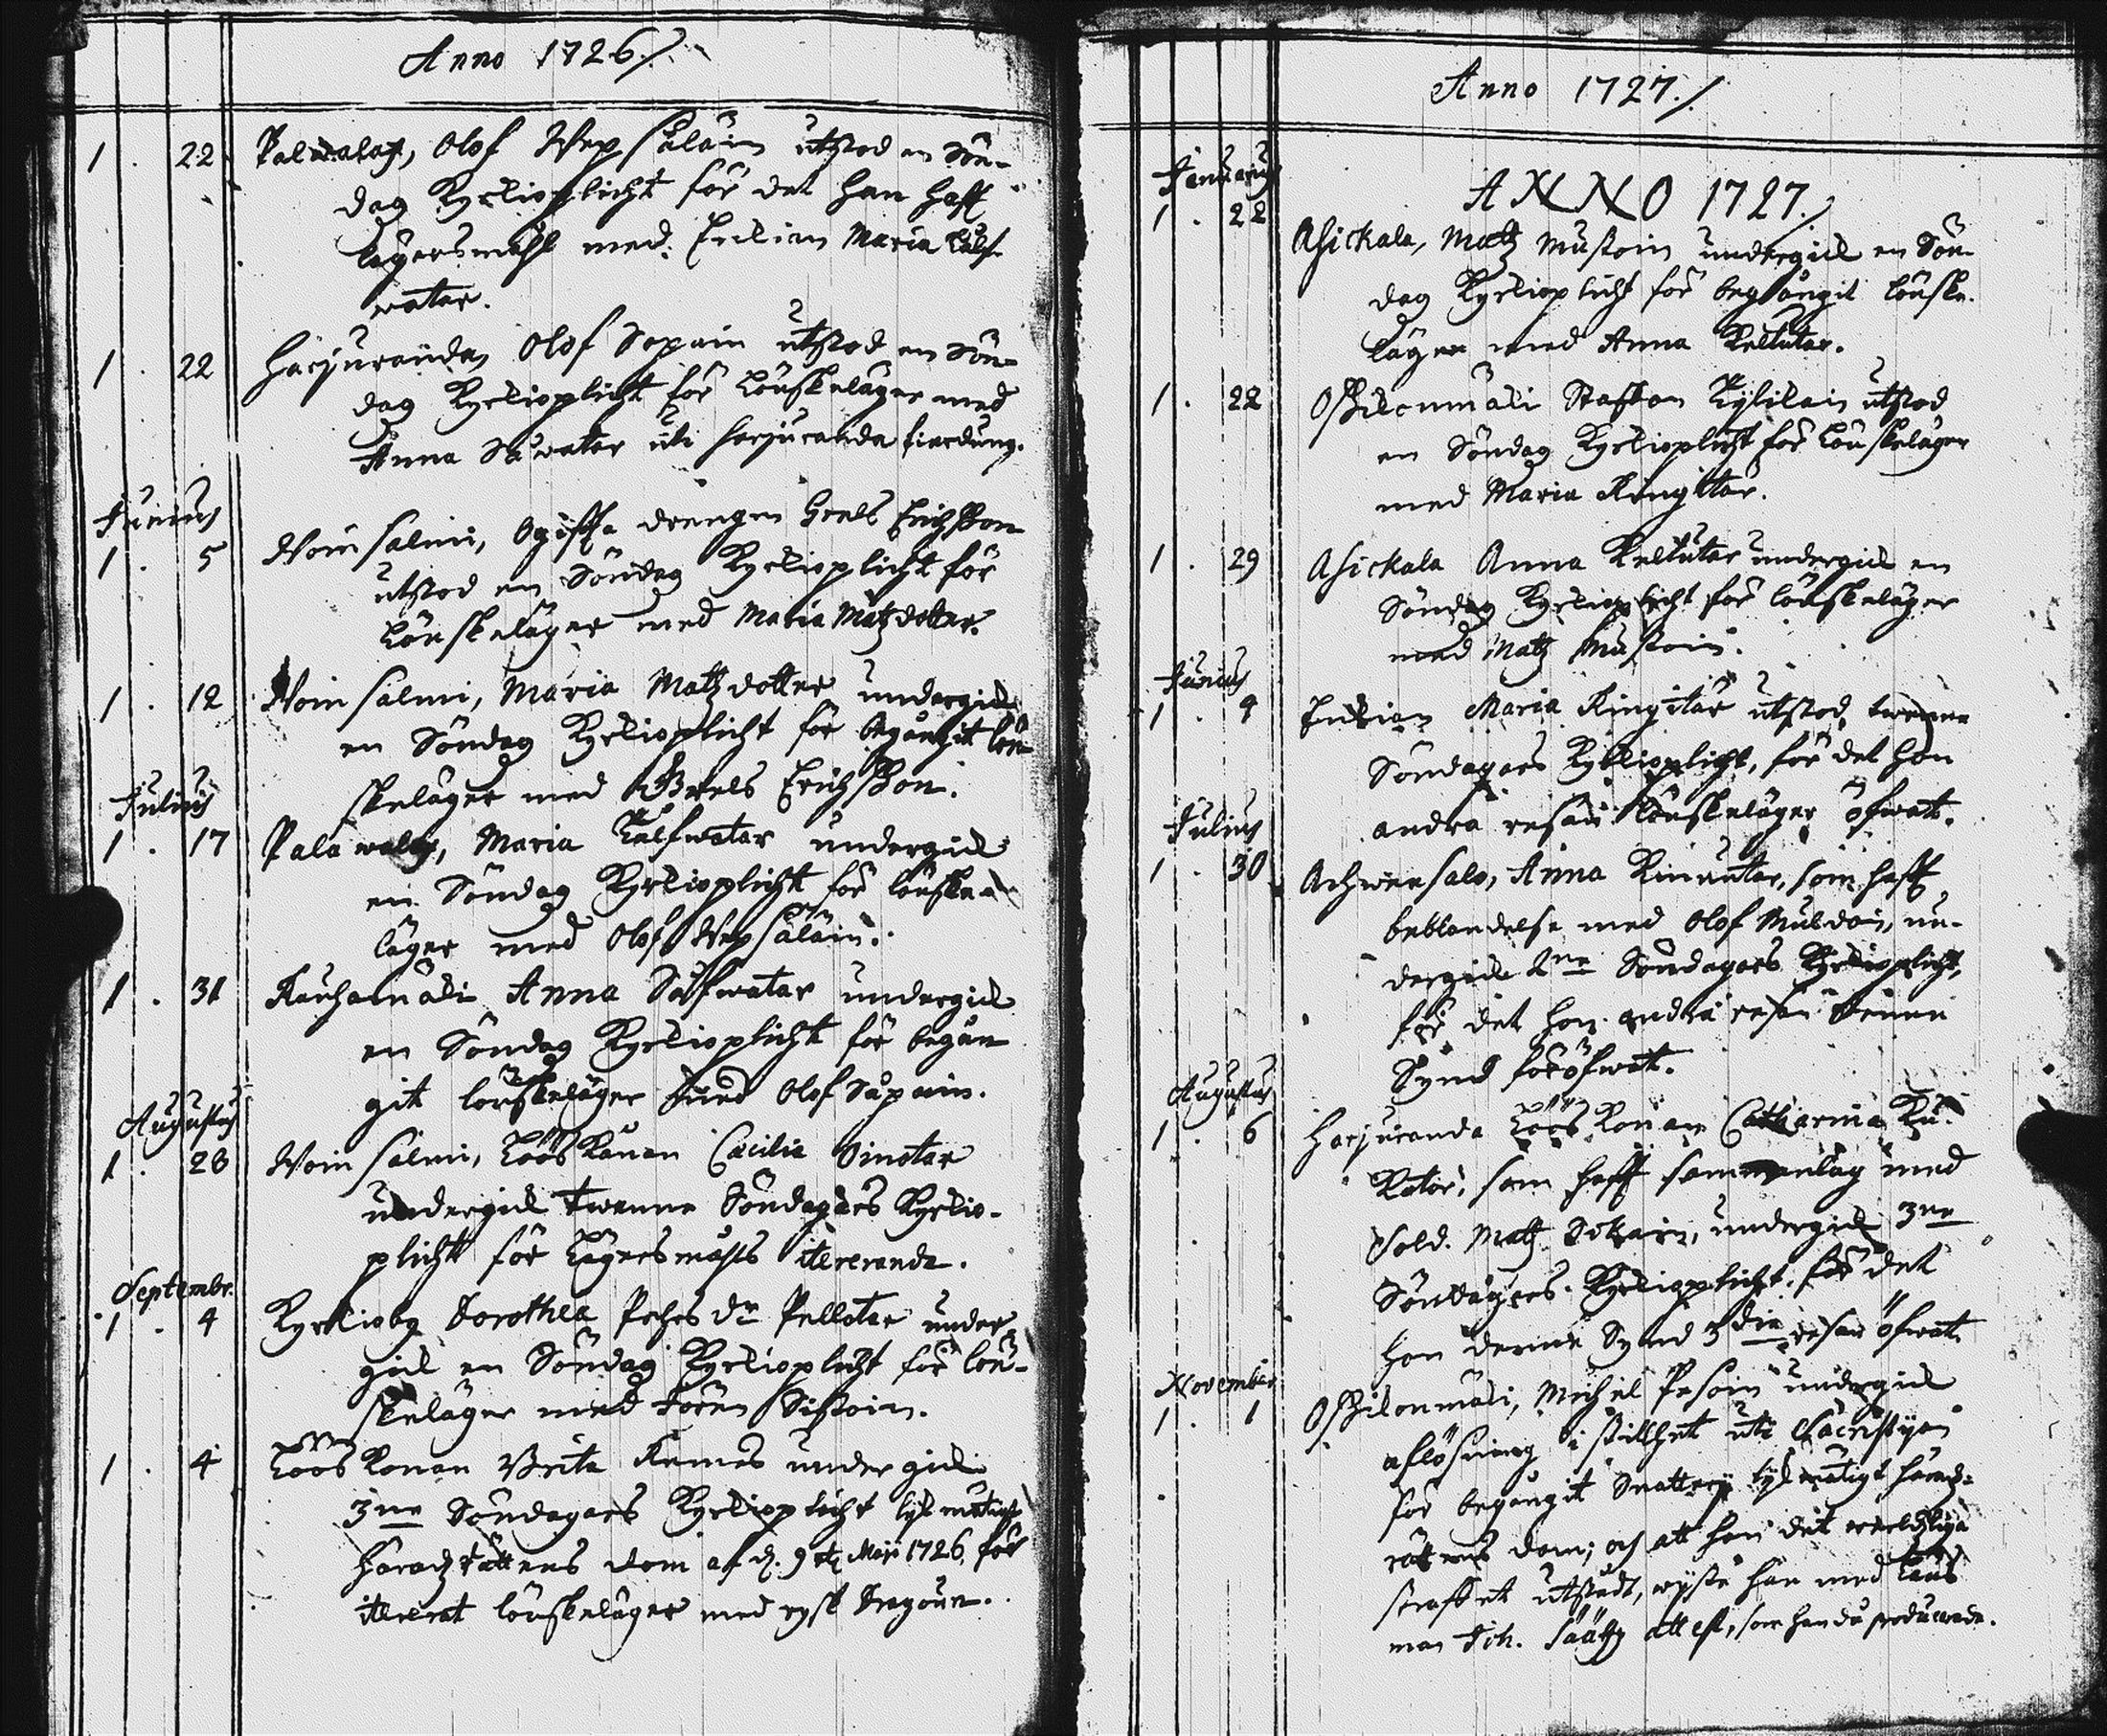 Anno 1726./.
1 . 22 Palawalax, Olof Wepsäläin utstod en Sön-
dag Kyrkioplicht för det han hafft
lägersmåhl med Enkian Maria Kålf-
watar.
1 . 22 Harjuranda, Olof Sopain utstod en Sön-
dag Kyrkioplicht för Lönskeläger med
Anna Sawatar uti Harjuranda fierdung.
Junius
1 . 5 Woinsalmi, Ogiffta drengen Grels Erichsson
utstod en Söndag Kyrkioplicht för
Lönskeläger med Maria Matzdotter.
1 . 12 Woinsalmi, Maria Matzdotter undergick
en Söndag Kyrkioplicht för begångit lön-
skeläger med Grels Erichsson.
Julius
1 . 17 Palawalax, Maria Kålfwatar undergick
en Söndag Kyrkioplicht för lönske-
läger med Olof Wepsäläin.
1 . 31 Rauhamäki Anna Safwatar undergick
en Söndag Kyrkioplicht för begån-
git lönskeläger med Olof Såpain.
Augustus
1 . 28 Woinsalmi, Löös Konan Cæcilia Oinotar
undergick twenne Söndagars Kyrkio-
plicht för Lägersmåhls itereranda.
Septembr.
1 . 4 Kyrkioby Dorothea Pehrs dr Pellotar under-
gick en Söndag Kyrkioplicht för lön-
skeläger med Jören Sistoin.
1 . 4 Löös Konan Brita Remes undergick
3ne Söndagars Kyrkioplicht lijkmätigt
Häradzrättens dom af d. 9 Maji 1726, för
itererat lönskeläger med rysk Dragoun.
Anno 1727./
Januarius
ANNO 1727./
1 . 22 Asickala, Matz Mustoin undergick en Sön-
dag Kyrkioplicht för begångit lönske-
läger med Anna Keltutar.
1 . 22 Osikonmäki Staffan Kylilain utstod
en Söndag Kyrkioplicht för Lönskeläger
med Maria Ringitar.
1 . 29 Asickala Anna Keltutar undergick en
Söndag Kyrkioplicht för lönskeläger
med Matz Mustoin.
Junius
1 . 4 Enkian Maria Ringitar utstod twenne
Söndagars Kyrkioplicht, för det hon
andra resan lönskeläger öfwat.
Julius
1 . 30 Achwensalo, Anna Rinnutar, som hafft
beblandelse med Olof Muldoin, un-
dergick 2ne Söndagars Kyrkioplicht,
för det hon andra resan denna
Synd föröfwat.
Augustus
1 . 6 Harjuranda Löös Konan Catharina Ku-
katar, som hafft sammanlag med
Sold. Matz Sikain, undergick 3ne
Söndagars Kyrkioplicht, för det
hon denna Synd 3die resan öfwat.
November
1 . 1 Osikonmäki, Michel Pesoin undergick
aflösning i stillhet uti Sacristijan
för begångit Snatterij lijkmätigt Häradz-
rättens dom; och att han det werldzliga
straffet utstådt, wijste han med Läns
man Joh. Sååtz attest, som han då producerade.